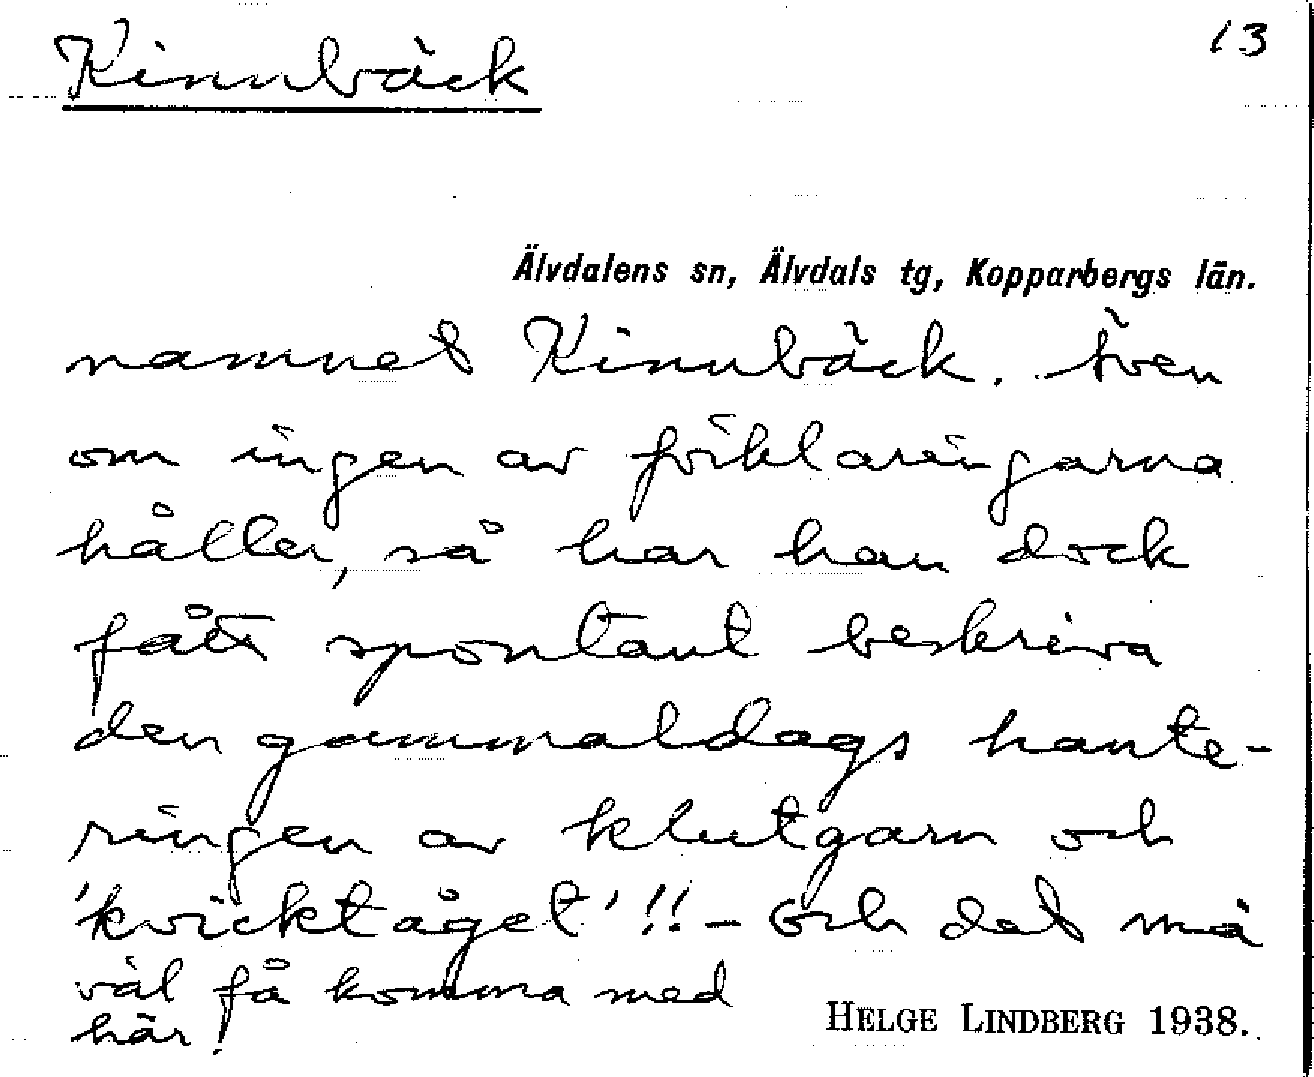 Kinnbäck
13
Älvdalens sn, Älvdals tg, Kopparbergs län.
namnet Kinnbäck. Även
om ingen av förklaringarna
håller, så har han dock
fått spontant beskriva
den gammaldags hante-
ringen av klutgarn och
'kvicktåget'!! - och det må
väl få komma med
här!
HELGE LINDBERG 1938.